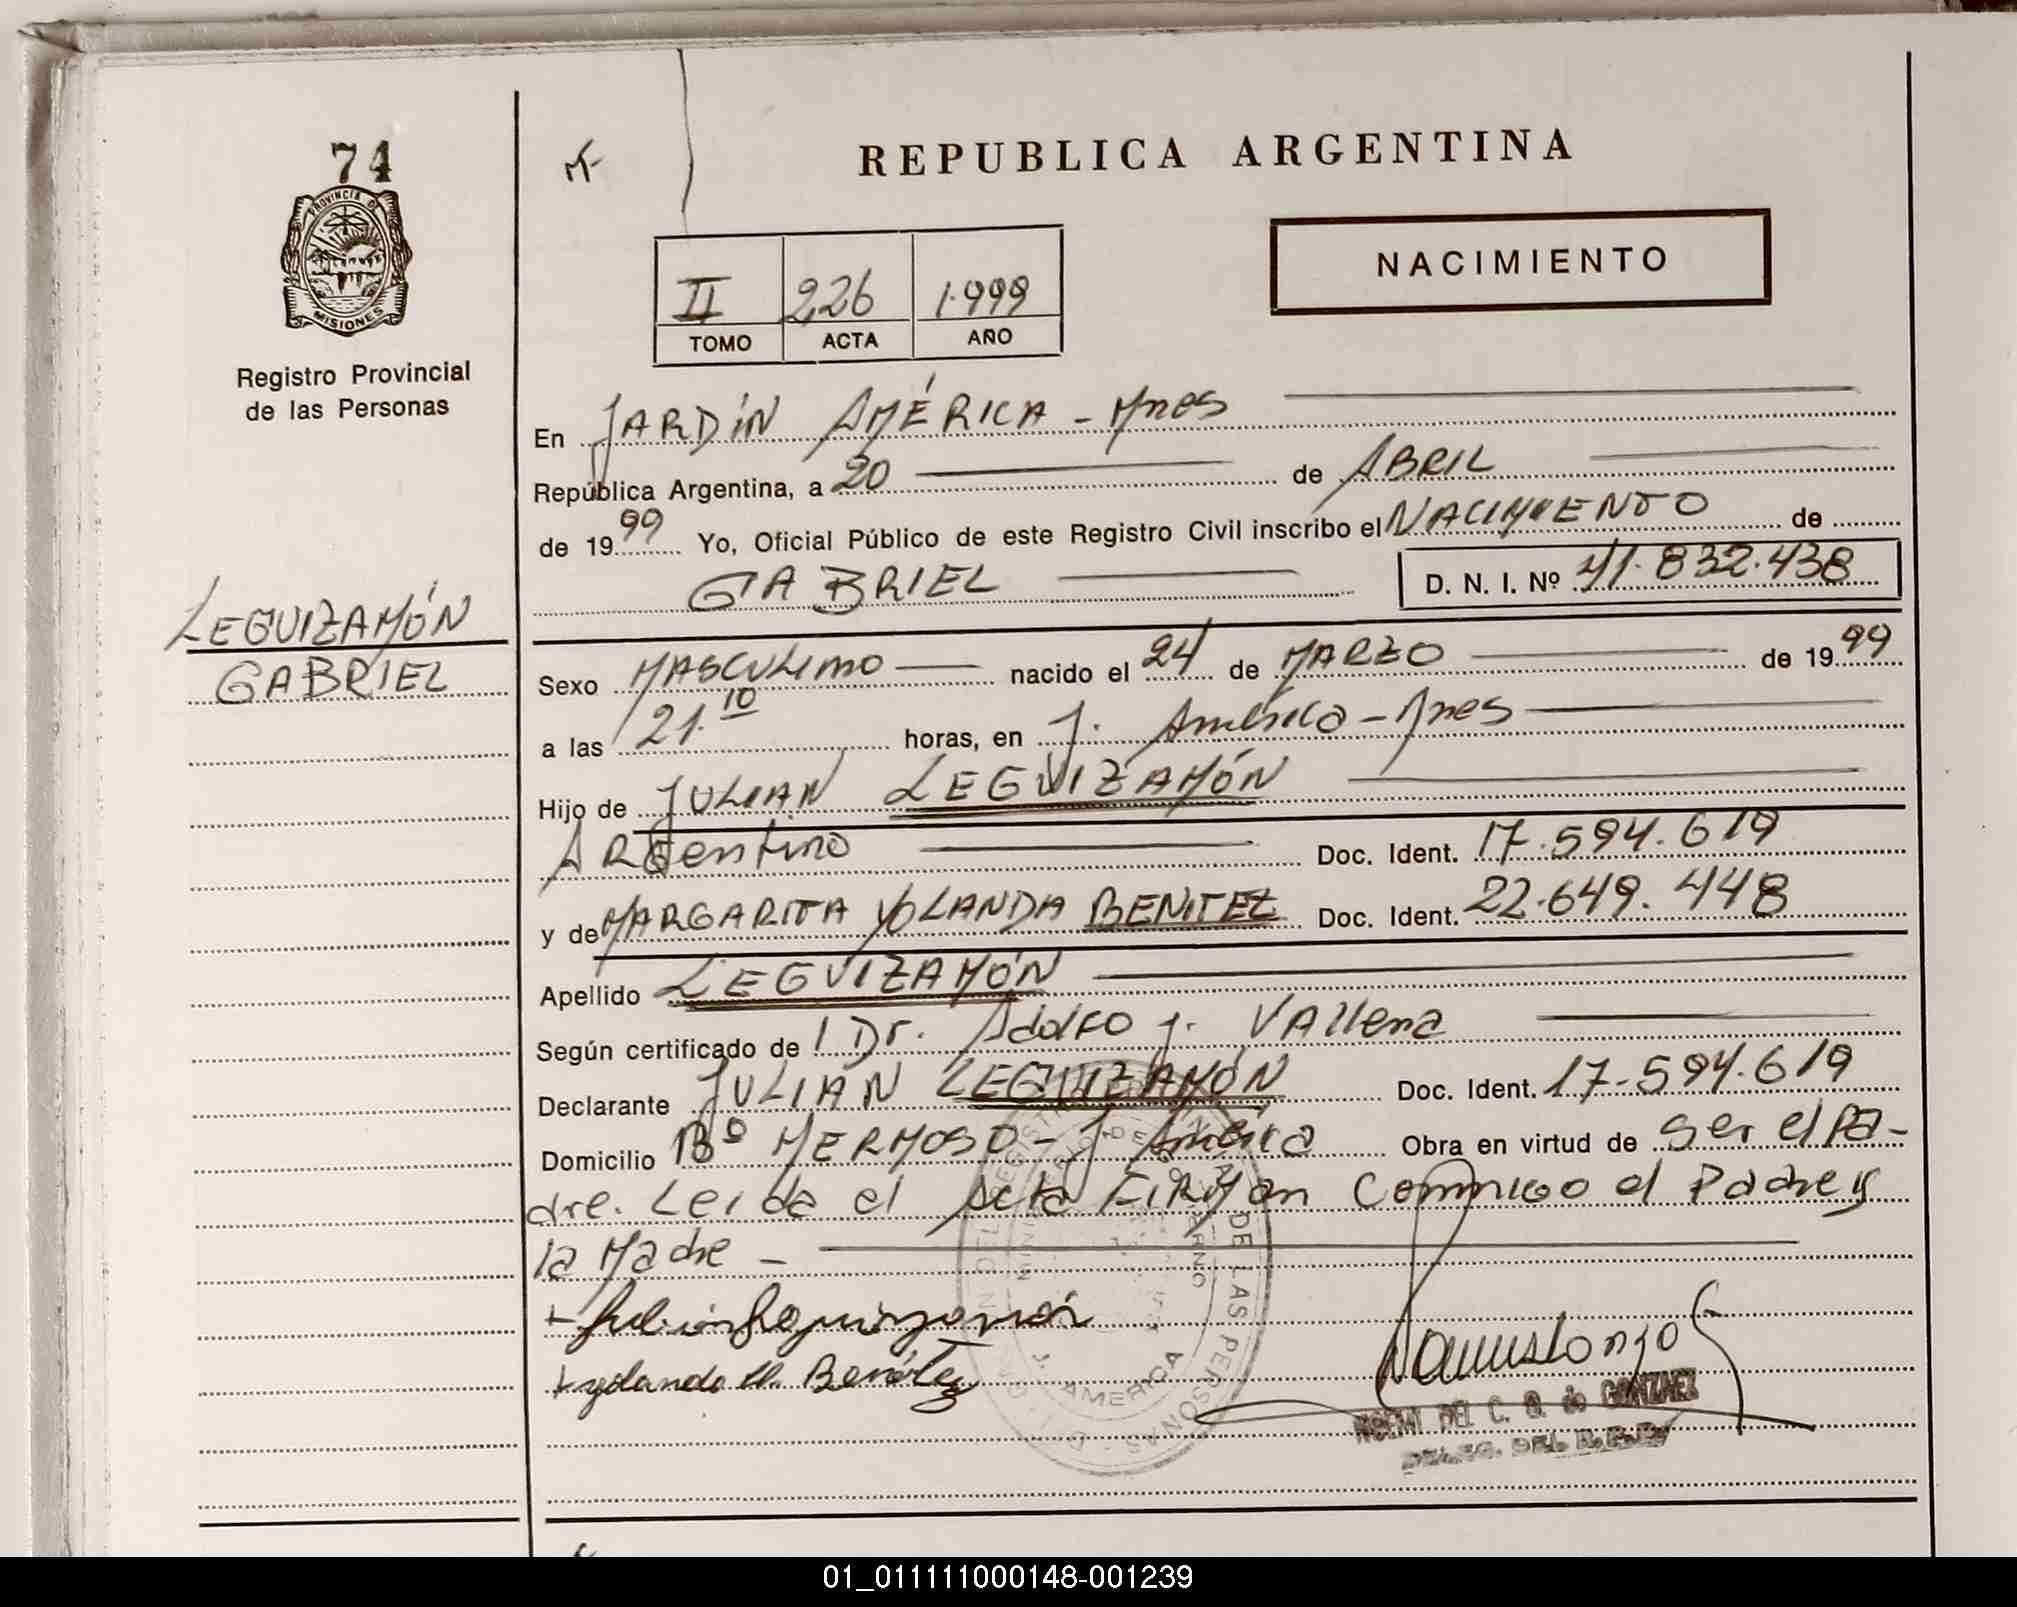 74
REPUBLICA ARGENTINA
PROVINCIA DE
MISIONES
Registro Provincial
de las Personas
NACIMIENTO
II 226 1.999
TOMO ACTA AÑO
En JARDÍN AMÉRICA - Mnes
República Argentina, a 20 de ABRIL
de 1999 Yo, Oficial Público de este Registro Civil inscribo el NACIMIENTO de
GABRIEL D. N. I. Nº 41.832.438
LEGUIZAMÓN
GABRIEL
Sexo MASCULINO nacido el 24 de MARZO de 1999
a las 21.10 horas, en J. América - Mnes
Hijo de JULIAN LEGUIZAMÓN
ARGentino Doc. Ident. 17.594.619
y de MARGARITA YOLANDA BENITEZ Doc. Ident. 22.649.448
Apellido LEGUIZAMÓN
Según certificado de l Dr. Adolfo J. Vallena
Declarante JULIAN LEGUIZAMÓN Doc. Ident. 17.594.619
Domicilio Bº HERMOSO - J América Obra en virtud de ser el Pa-
dre. Leida el Acta FIRMAN Conmigo el Padre y
la Madre -
+ Julián Leguizamón
+ yolanda M. Benítez
J. AMERICA
DE LAS PERSONAS
DEL C. B. de GONZALEZ
DELEG. DEL R.P.P.
01_011111000148-001239